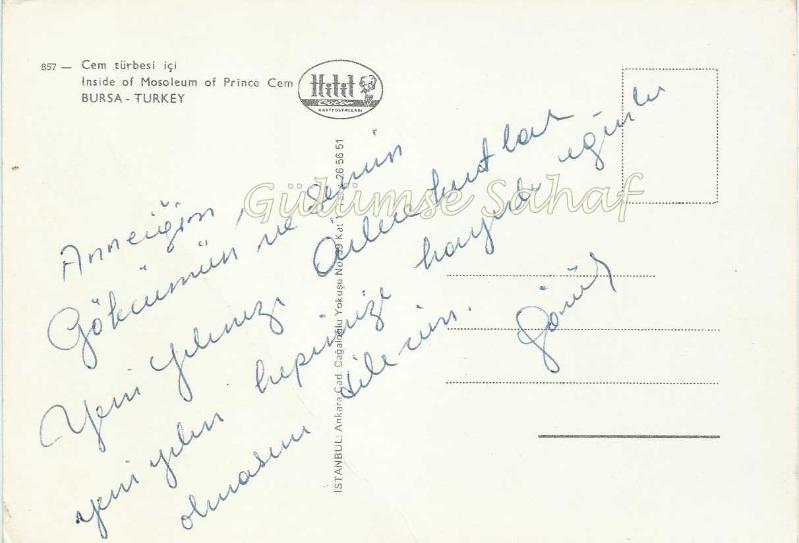 857 — Cem türbesi içi
Inside of Mosoleum of Prince Cem
BURSA - TURKEY
Hitit
Color
KARTPOSTALLARI
İSTANBUL: Ankara Cad. Cağaloğlu Yokuşu No. 39 Kat 1 26 56 51
Gülümse Sahaf
Anneciğim,
Gökcümün ve senin
Yeni yılınızı kutlar
yeni yılın hepimize hayırlı uğurlu
olmasını dilerim.